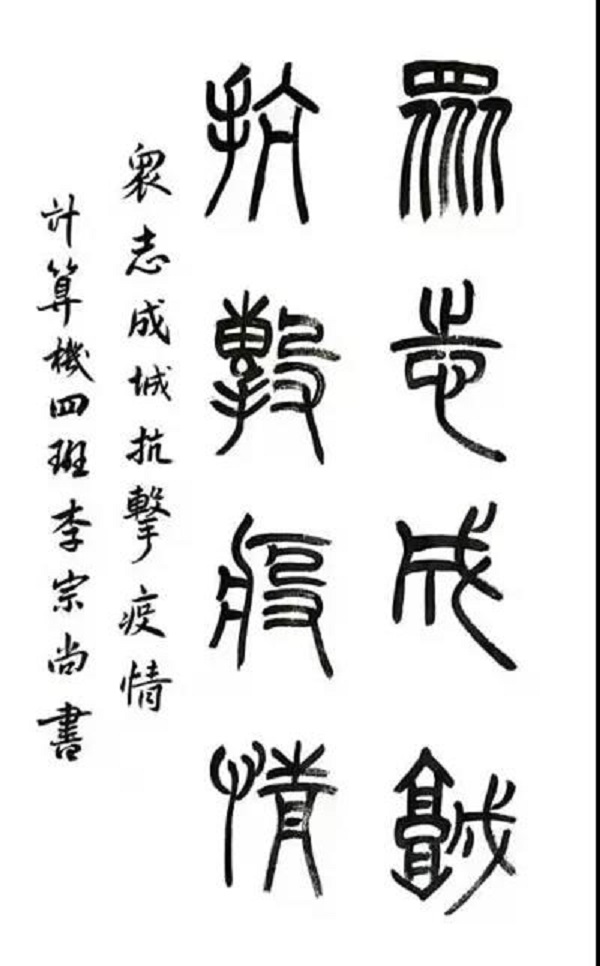 眾志成城
抗擊疫情
眾志成城抗擊疫情
計算機四班李宗尚書